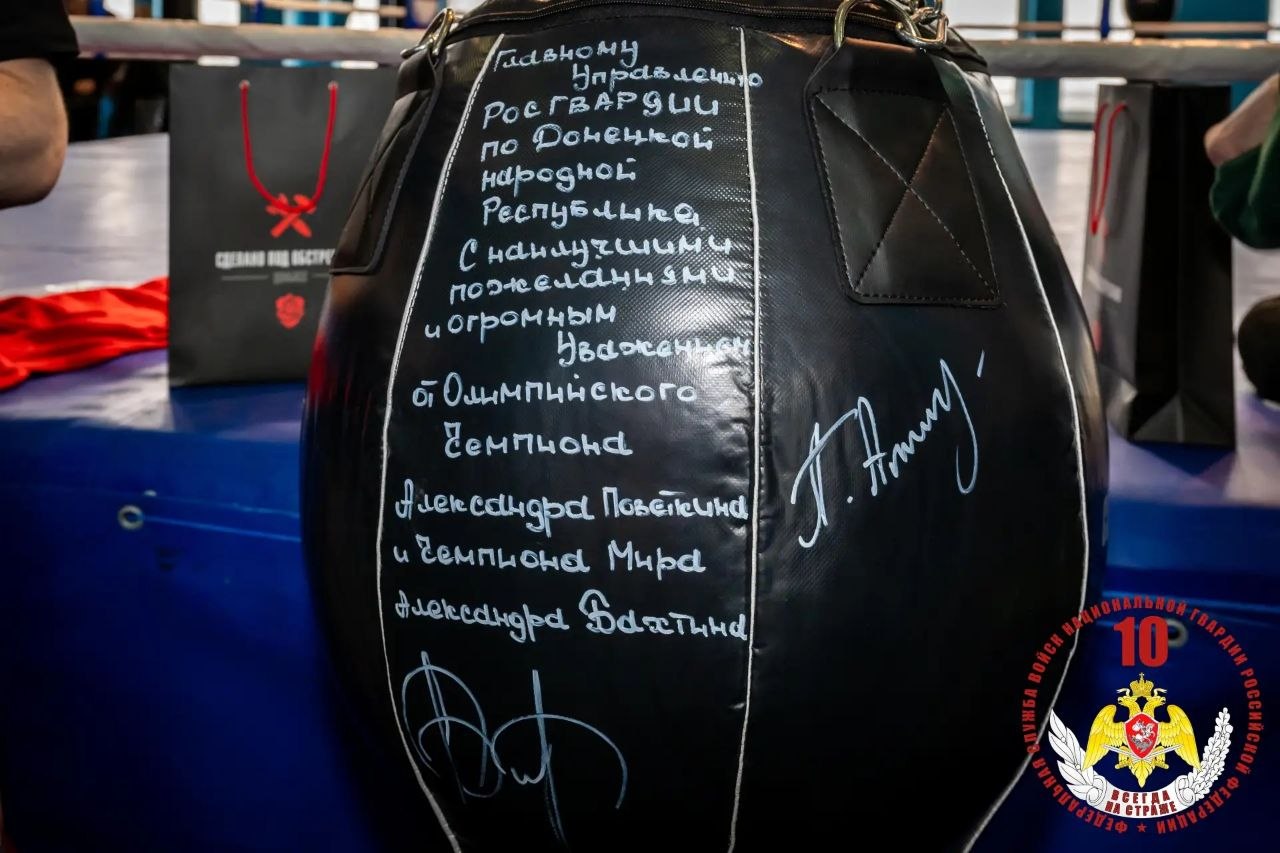 Главному
Управлению
РОСГВАРДИИ
по Донецкой
народной
Республика,
С наилучшими
пожеланиями
и огромным
Уважением
от Олимпийского
Чемпиона
Александра Поветкина
и Чемпиона Мира
Александра Бахтина
СДЕЛАНО ПОД
ФЕДЕРАЛЬНАЯ СЛУЖБА ВОЙСК НАЦИОНАЛЬНОЙ ГВАРДИИ РОССИЙСКОЙ ФЕДЕРАЦИИ
10
ВСЕГДА
НА СТРАЖЕ